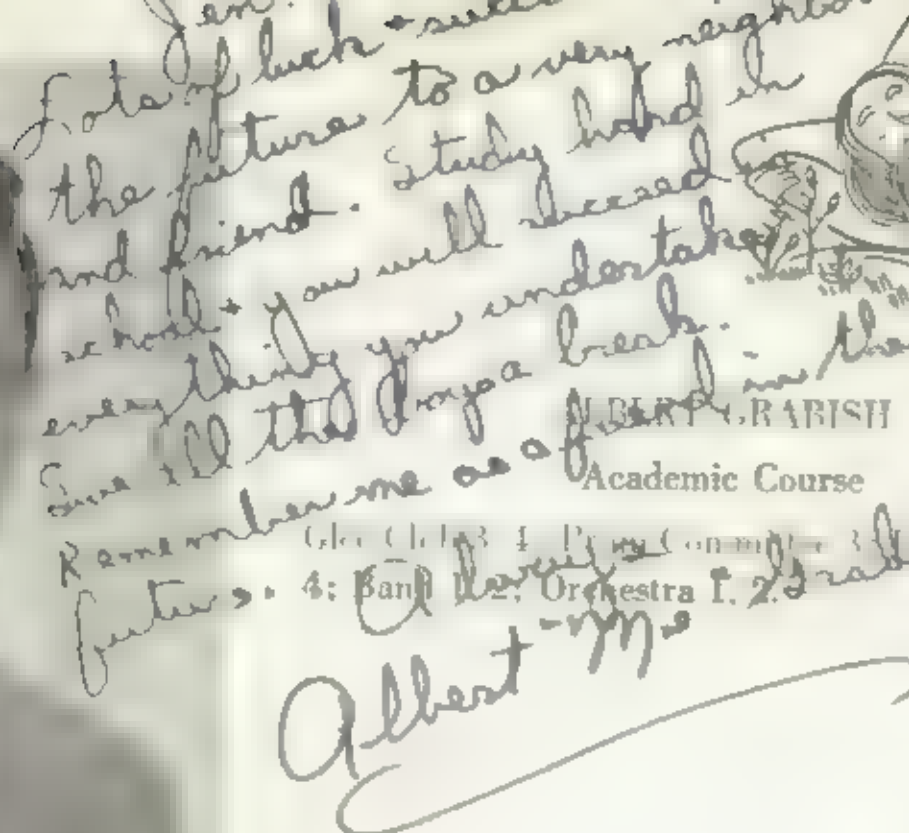 Jen.
Lots of luck + succ
the future to a very neighbo
and friend. Study hard in
school + you will succeed in
everything you undertake.
Sure ill they a break.
Remember me as a friend in the
future. Always
ALBERT GRABISH
Academic Course
Glee Club 3, 4; Prom Committee 3
4; Band 1, 2; Orchestra 1, 2.
Albert